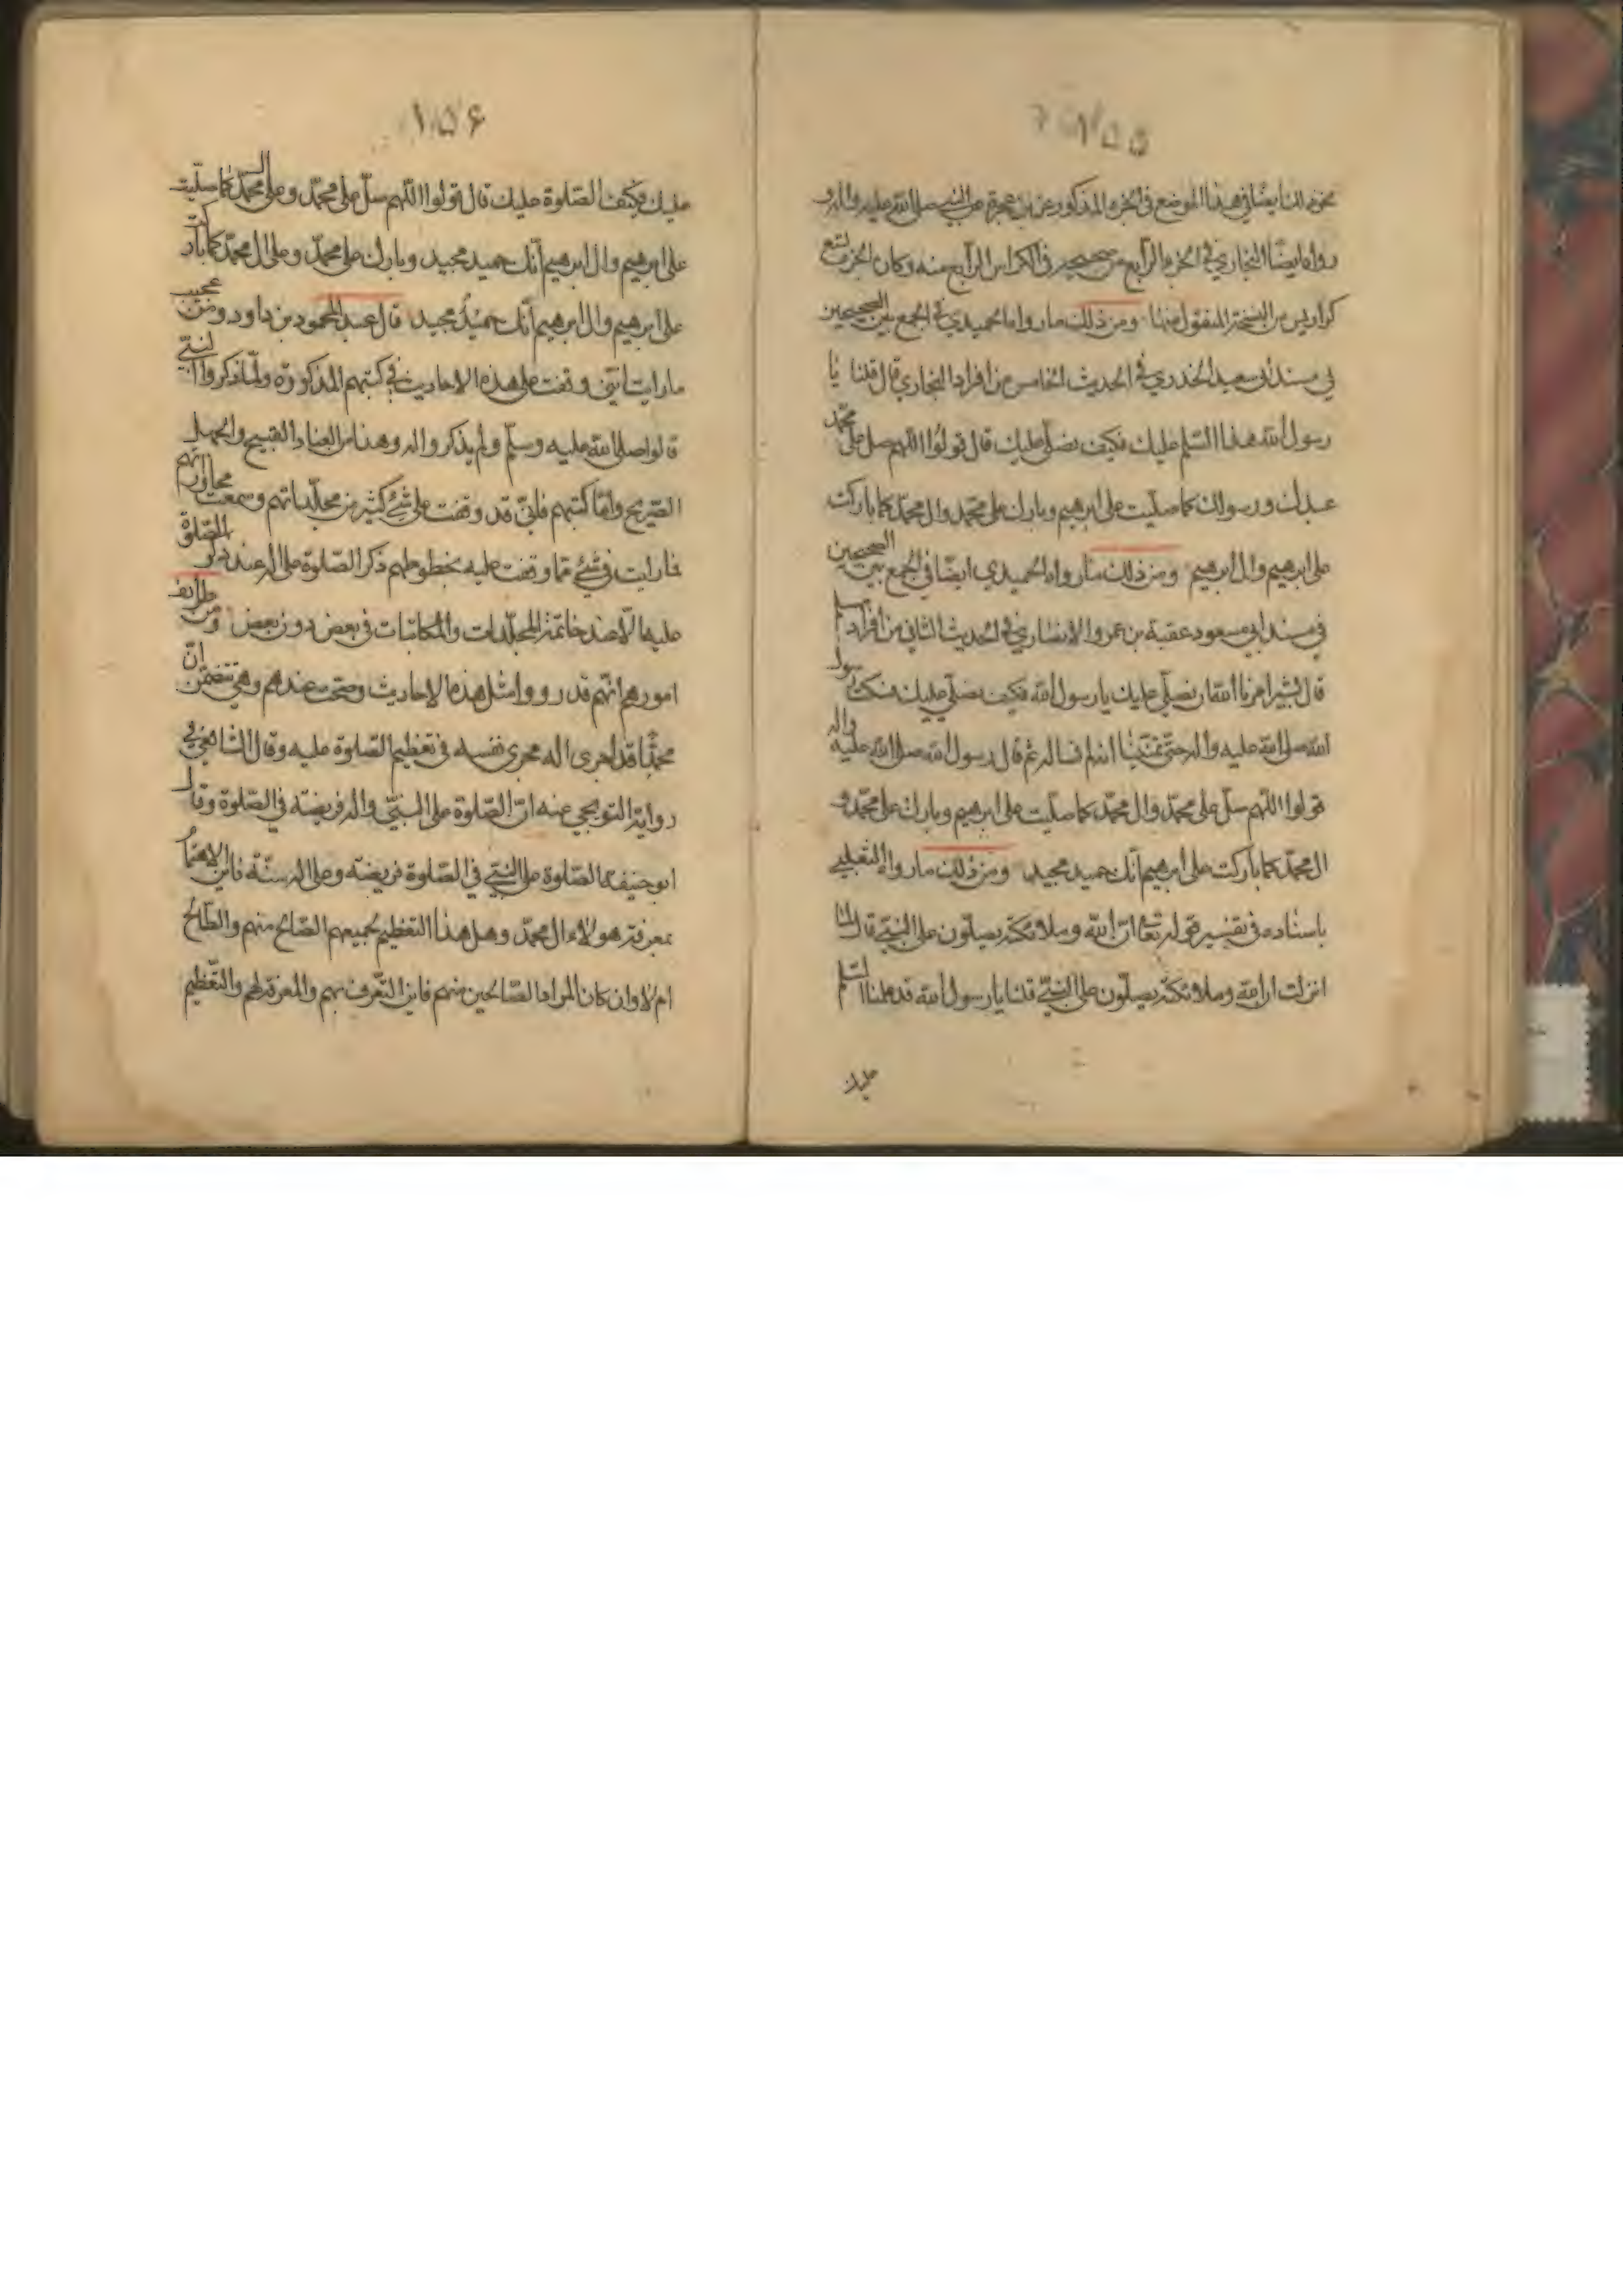 ۱۵۵
نحو ذلك ايضا في هذا الموضع في الجزء المذكور عن بن عجرة عن النبي صلى الله عليه واله و
رواه ايضا البخاري في الجزء الرابع من صحيحه في الكراس الرابع منه وكان الجزء تسع
كراريس من النسخة المنقول منها ومن ذلك ما رواه الحميدي في الجمع بين الصحيحين
في مسند ابي سعيد الخدري في الحديث الخامس من افراد البخاري قال قلنا يا
رسول الله هذا السّلم عليك فكيف نصلّي عليك قال قولوا اللّهم صل على محمّد
عبدك ورسولك كما صلّيت على ابرهيم وبارك على محمّد وال محمّد كما باركت
على ابرهيم وال ابرهيم ومن ذلك ما رواه الحميدي ايضا في الجمع بين الصحيحين
في مسند ابي مسعود عقبة بن عمرو الانصاري في الحديث الثاني من افراد مسلم
قال بشير امرنا الله ان نصلّي عليك يا رسول الله فكيف نصلّي عليك فسكت رسول
الله صلى الله عليه واله حتى تمنّينا انه لم نساله ثم قال رسول الله صلى الله عليه واله
قولوا اللّهم صلّ على محمّد وال محمّد كما صلّيت على ابرهيم وبارك على محمّد و
ال محمّد كما باركت على ابرهيم انّك حميد مجيد ومن ذلك ما رواه الثعلبي
باسناده في تفسير قوله تعا انّ الله وملائكته يصلّون على النبيّ قال لمّا
انزلت ان الله وملائكته يصلّون على النبيّ قلنا يا رسول الله قد علمنا السّلم
عليك
۱۵۶
عليك وكيف الصّلوة عليك قال قولوا اللّهم صلّ على محمّد وعلى ال محمّد كما صلّيت
على ابرهيم وال ابرهيم انّك حميد مجيد وبارك على محمّد وعلى ال محمّد كما باركت
على ابرهيم وال ابرهيم انّك حميد مجيد قال عبد المحمود بن داود ومن عجيب
ما رايت انّني وقفت على هذه الاحاديث في كتبهم المذكورة ولمّا ذكروا النبيّ
قالوا صلى الله عليه وسلّم ولم يذكروا اله وهذا من العناد القبيح والجهل
الصّريح وامّا كتبهم فانّي قد وقفت على شيء كثير من مجلّداتهم وسمعت محاوراتهم
فما رايت في شيء ممّا وقفت عليه بخطوطهم ذكر الصّلوة على اله عند ذكر الصّلوة
عليه الا عند خاتمة المجلّدات والمكاتبات في بعض دون بعض ومن طرائف
امورهم انّهم قد رووا مثل هذه الاحاديث وصحّت عندهم وهي تتضمّن انّ
محمّدا قد اجرى اله مجرى نفسه في تعظيم الصّلوة عليه وقال الشافعي في
رواية عنه انّ الصّلوة على النبيّ واله فريضة في الصّلوة وقال
ابو حنيفة الصّلوة على النبيّ في الصّلوة فريضة وعلى اله سنّة فاين الاهتمام
بمعرفة هولاء ال محمّد وهل هذا التعظيم لجميعهم الصّالح منهم والطّالح
ام لا وان كان المراد الصّالحين منهم فاين التّعرف بهم والمعرفة لهم والتّعظيم